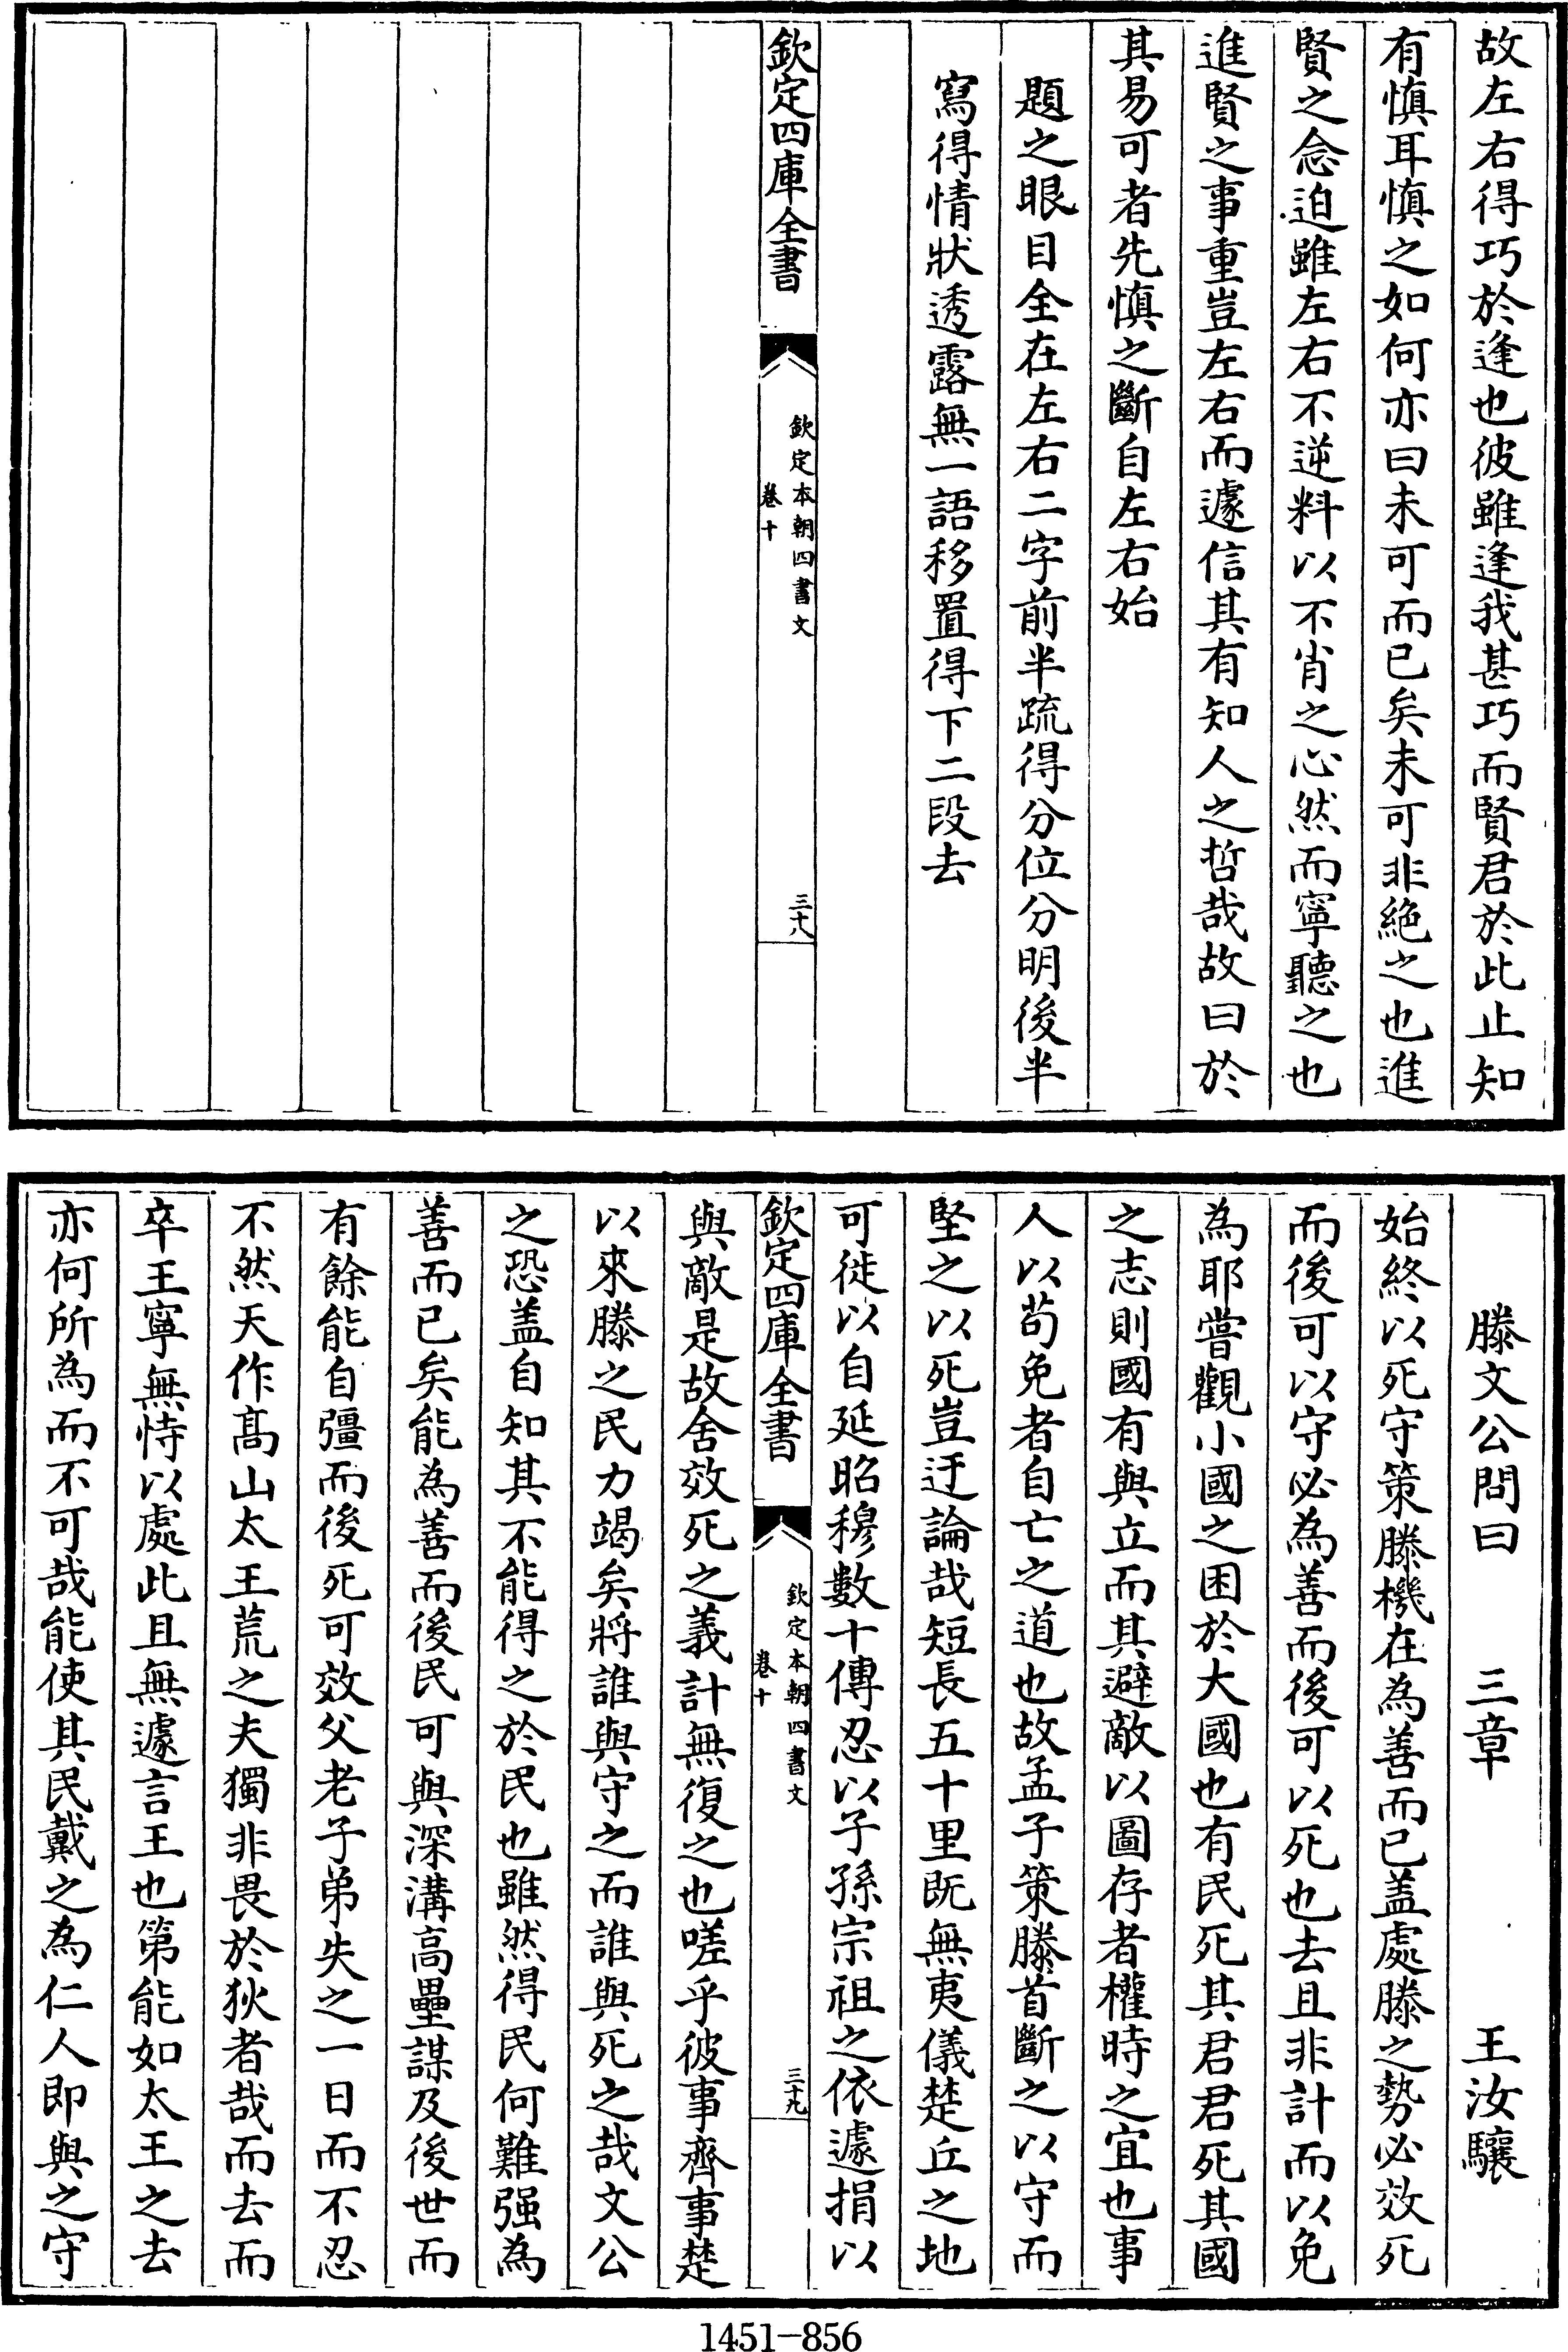 故左右得巧於逢也彼雖逢我甚巧而賢君於此止知
有慎耳慎之如何亦曰未可而已矣未可非絶之也進
賢之念迫雖左右不逆料以不肖之心然而寧聽之也
進賢之事重豈左右而遽信其有知人之哲哉故曰於
其易可者先慎之斷自左右始
題之眼目全在左右二字前半疏得分位分明後半
寫得情狀透露無一語移置得下二段去
欽定四庫全書
欽定本朝四書文
卷十
三十八
滕文公問曰 三章 王汝驤
始終以死守策滕機在為善而已盖處滕之勢必效死
而後可以守必為善而後可以死也去且非計而以免
為耶嘗觀小國之困於大國也有民死其君君死其國
之志則國有與立而其避敵以圖存者權時之宜也事
人以苟免者自亡之道也故孟子策滕首斷之以守而
堅之以死豈迂論哉短長五十里既無夷儀楚丘之地
可徙以自延昭穆數十傳忍以子孫宗祖之依遽捐以
欽定四庫全書
欽定本朝四書文
卷十
三十九
與敵是故舍效死之義計無復之也嗟乎彼事齊事楚
以來滕之民力竭矣將誰與守之而誰與死之哉文公
之恐盖自知其不能得之於民也雖然得民何難强為
善而已矣能為善而後民可與深溝高壘謀及後世而
有餘能自彊而後死可效父老子弟失之一日而不忍
不然天作髙山太王荒之夫獨非畏於狄者哉而去而
卒王寧無恃以處此且無遽言王也第能如太王之去
亦何所為而不可哉能使其民戴之為仁人即與之守
1451-856